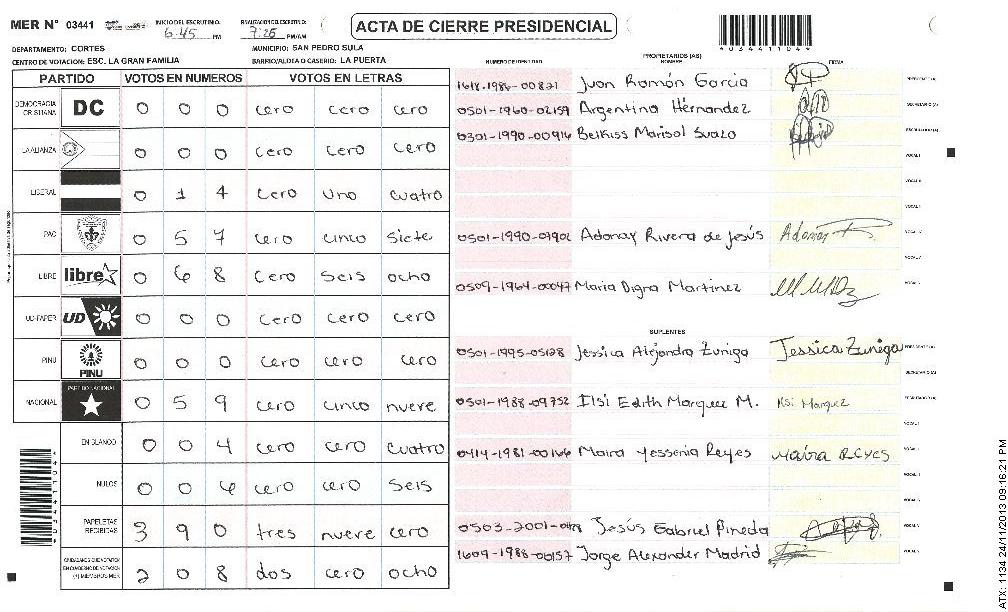 MER N° 03441
INICIO DEL ESCRUTINIO: 6:45 PM
FINALIZACION DEL ESCRUTINIO: 7:25 PM/AM
ACTA DE CIERRE PRESIDENCIAL
4034411044
DEPARTAMENTO: CORTES
MUNICIPIO: SAN PEDRO SULA
CENTRO DE VOTACION: ESC. LA GRAN FAMILIA
BARRIO/ALDEA O CASERIO: LA PUERTA
PARTIDO VOTOS EN NUMEROS VOTOS EN LETRAS
DEMOCRACIA CRISTIANA DC 0 0 0 cero cero cero
LA ALIANZA 0 0 0 cero cero cero
LIBERAL 0 1 4 cero uno cuatro
PAC 0 5 7 cero cinco siete
LIBRE libre 0 6 8 cero seis ocho
UD-FAPER UD 0 0 0 cero cero cero
PINU PINU 0 0 0 cero cero cero
NACIONAL PARTIDO NACIONAL 0 5 9 cero cinco nueve
EN BLANCO 0 0 4 cero cero cuatro
NULOS 0 0 6 cero cero seis
PAPELETAS RECIBIDAS 3 9 0 tres nueve cero
2 0 8 dos cero ocho
PROPIETARIOS (AS)
NUMERO DE IDENTIDAD NOMBRE FIRMA
1618-1986-00821 Juan Ramón Garcia PRESIDENTE (A)
0501-1960-02159 Argentina Hérnandez SECRETARIO (A)
0301-1990-00914 Belkiss Marisol Suazo ESCRUTADOR (A)
VOCAL I
VOCAL II
VOCAL III
Adonay Rivera de Jesús
VOCAL V
0509-1964-00047 Maria Digna Martinez
SUPLENTES
0501-1995-05128 Jessica Alejandra Zuniga Jessica Zuniga PRESIDENTE (A)
SECRETARIO (A)
0501-1988-09752 Ilsi Edith Marquez M. Ilsi Marquez
VOCAL I
0414-1981-00166 Maira Yessenia Reyes Maira Reyes
Jesús Gabriel Pineda
1609-1988-00157 Jorge Alexander Madrid
ATX: 1134 24/11/2013 09:16:21 PM